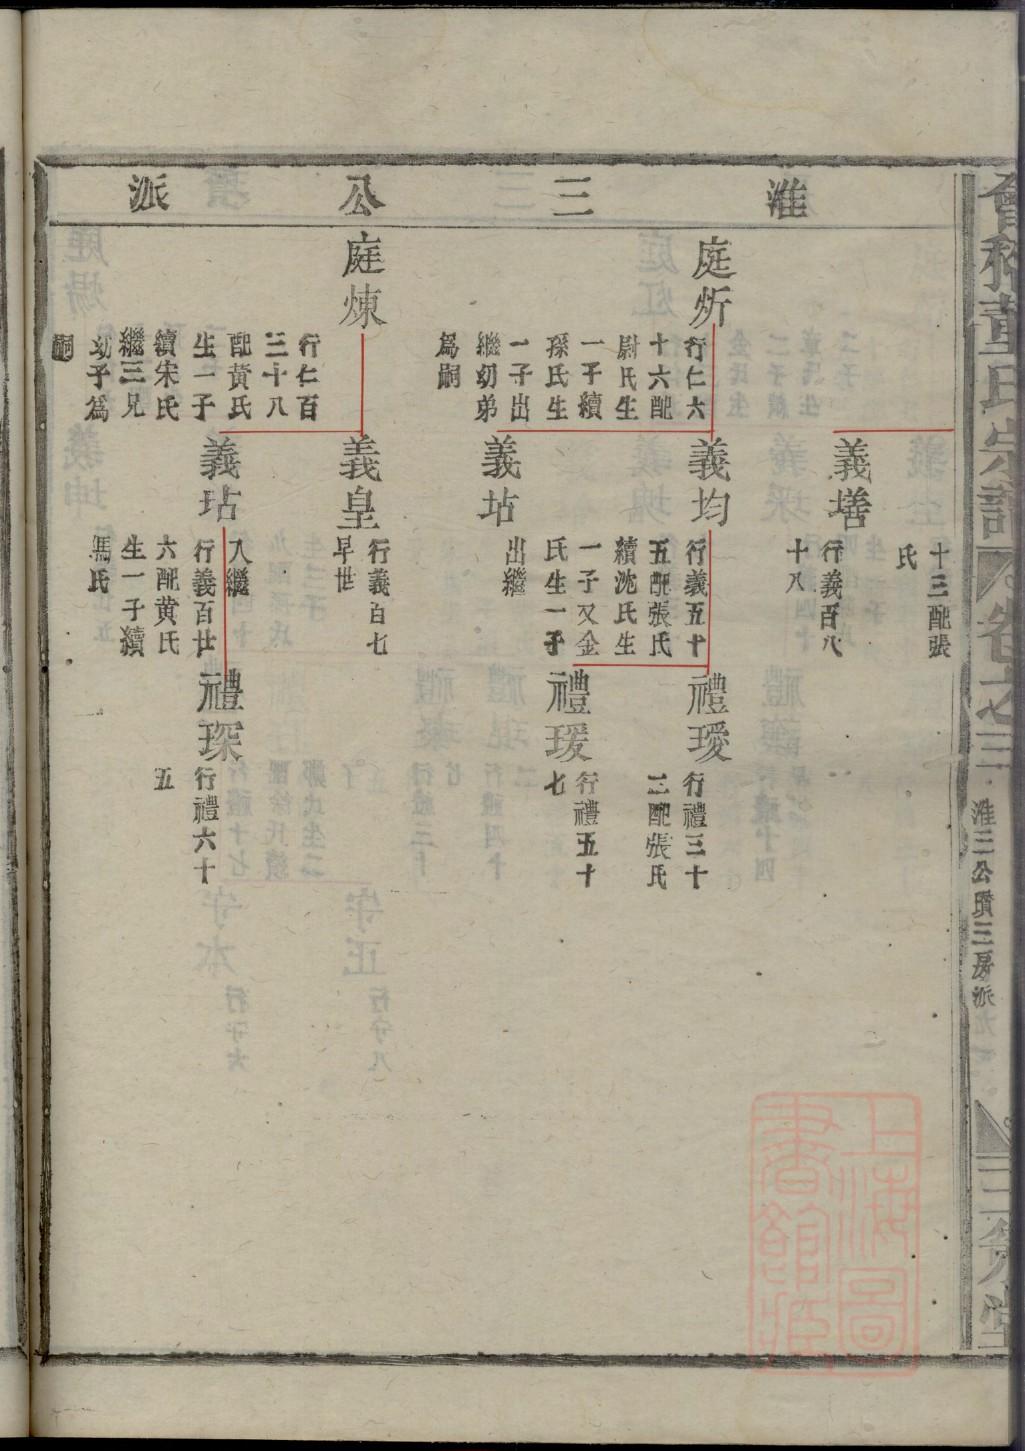 淮三公派
庭炘
行仁六
十六配
尉氏生
一子續
孫氏生
一子出
繼幼弟
爲嗣
庭煉
行仁百
三十八
配黃氏
生一子
續宋氏
繼三兄
幼子爲
嗣
十三配張
氏
義墡
行義百八
十八
義均
行義五十
五配張氏
續沈氏生
一子又金
氏生一子
義坫
出繼
義皇
行義百七
早世
義坫
入繼
行義百廿
六配黃氏
生一子續
馮氏
禮璦
行禮三十
二配張氏
禮瑗
行禮五十
七
禮琛
行禮六十
五
會稽董氏宗譜
卷之三
淮三公瓚三房派
三策堂
上海圖
書館藏